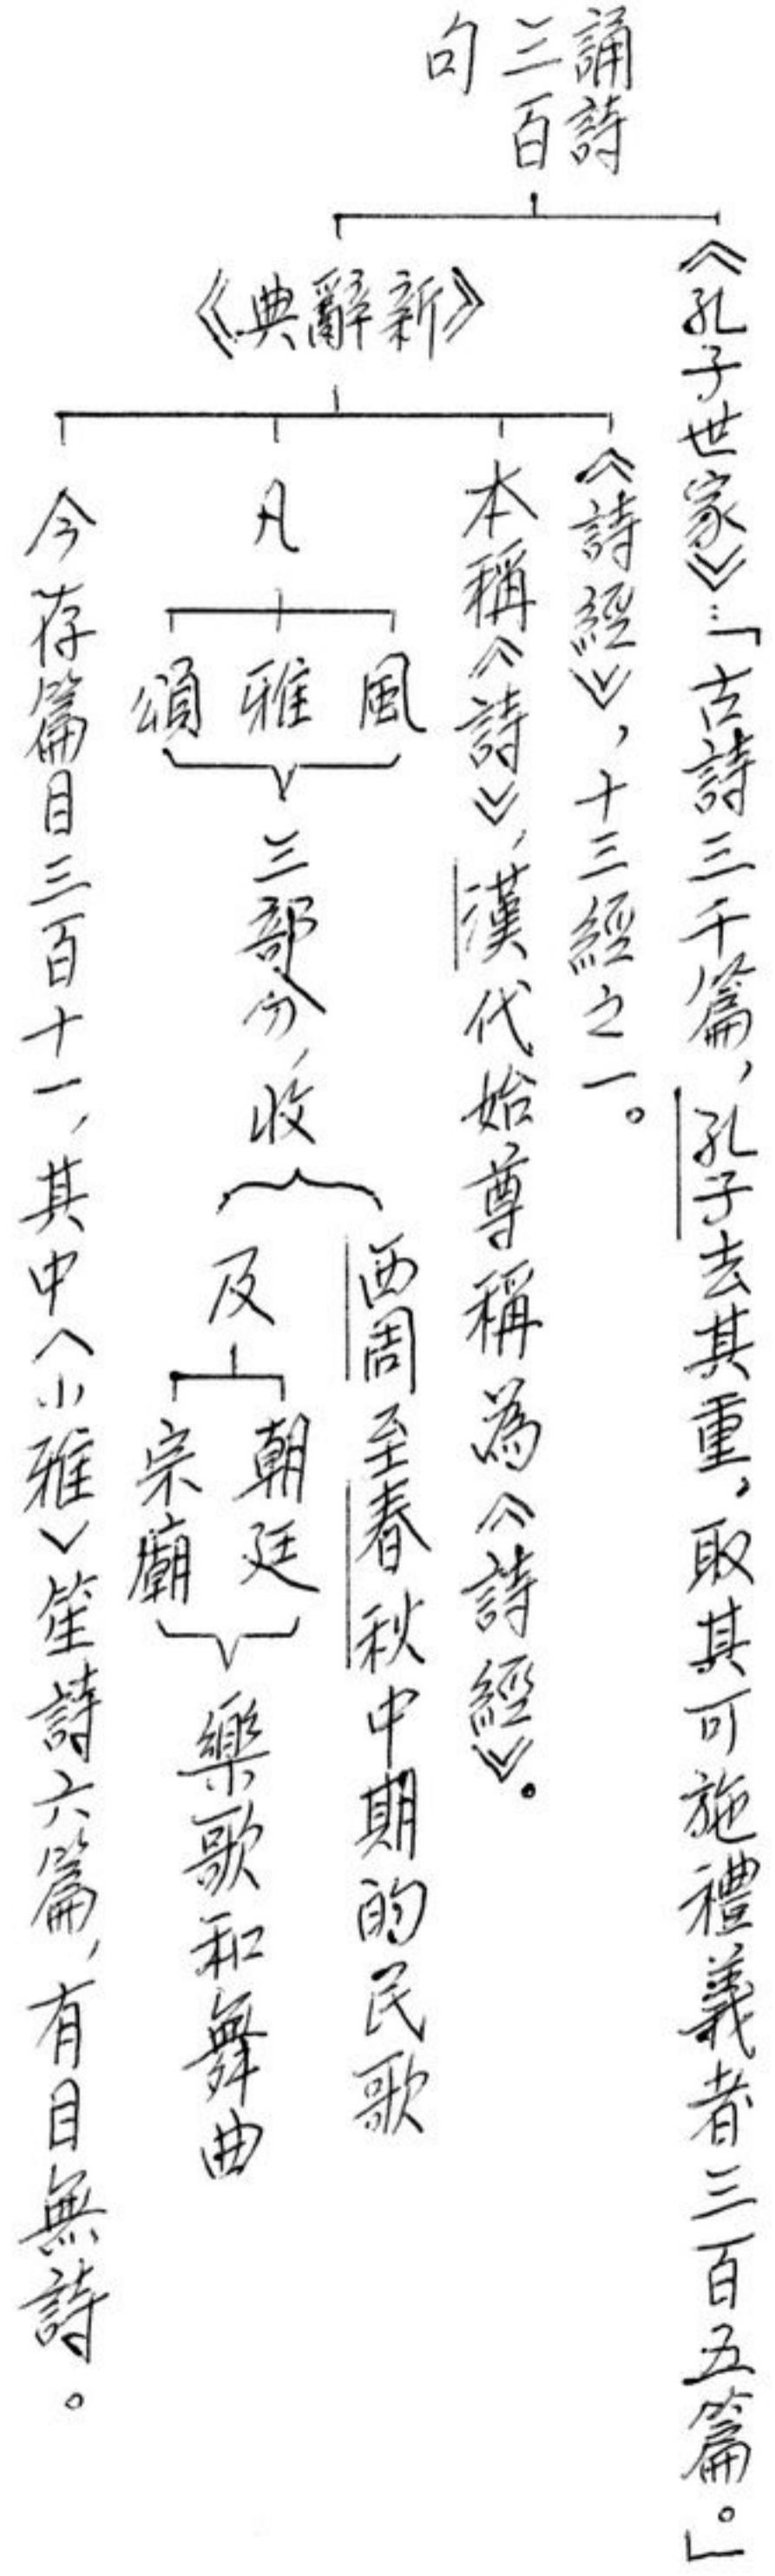 誦詩
三百
句
《孔子世家》：「古詩三千篇，孔子去其重，取其可施禮義者三百五篇。」
《新辭典》
《詩經》，十三經之一。
本稱《詩》，漢代始尊稱為《詩經》。
凡
風
雅
頌
三部分，收
西周至春秋中期的民歌
及
朝廷
宗廟
樂歌和舞曲
今存篇目三百十一，其中〈小雅〉笙詩六篇，有目無詩。